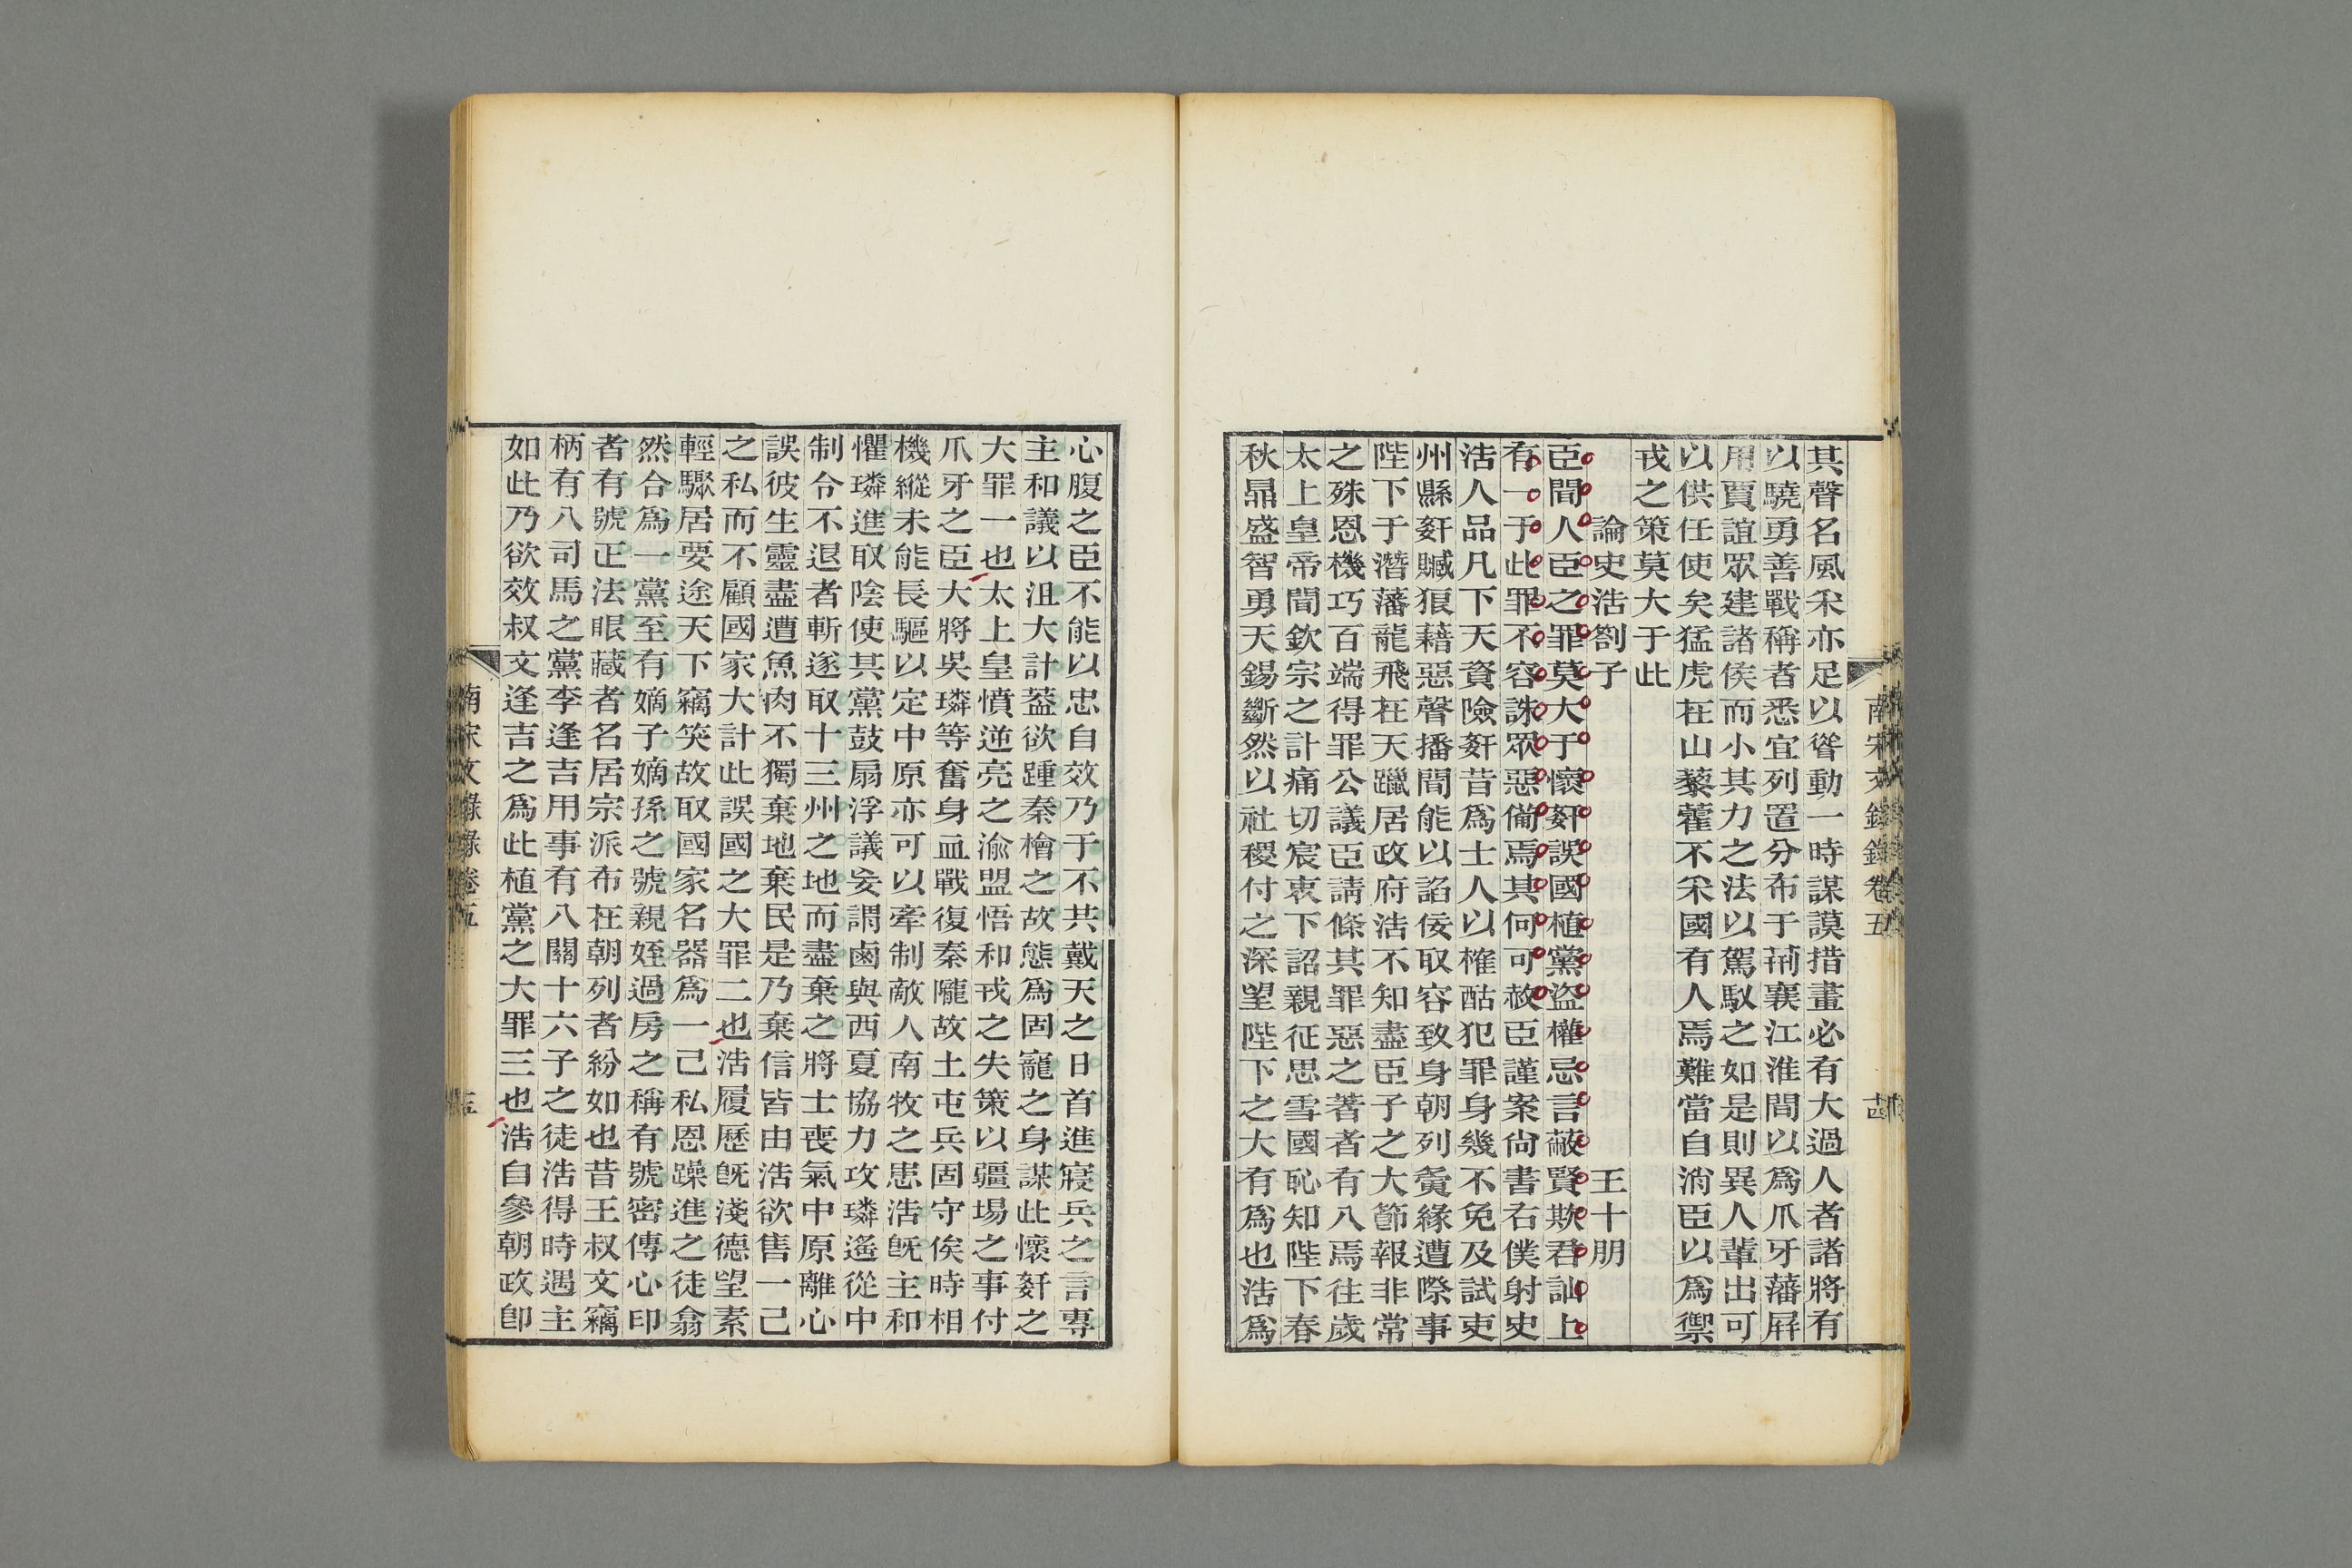 南宋文錄錄卷五
十四
其聲名風采亦足以聳動一時謀謨措畫必有大過人者諸將有
以驍勇善戰稱者悉宜列置分布于荊襄江淮間以爲爪牙藩屛
用賈誼眾建諸侯而小其力之法以駕馭之如是則異人輩出可
以供任使矣猛虎在山藜藿不采國有人焉難當自消臣以爲禦
戎之策莫大于此
論史浩劄子 王十朋
臣聞人臣之罪莫大于懷姦誤國植黨盜權忌言蔽賢欺君訕上
有一于此罪不容誅眾惡備焉其何可赦臣謹案尚書右僕射史
浩人品凡下天資險姦昔爲士人以榷酤犯罪身幾不免及試吏
州縣姦贓狼藉惡聲播聞能以諂佞取容致身朝列夤緣遭際事
陛下于潛藩龍飛在天躐居政府浩不知盡臣子之大節報非常
之殊恩機巧百端得罪公議臣請條其罪惡之著者有八焉往歲
太上皇帝聞欽宗之計痛切宸衷下詔親征思雪國恥知陛下春
秋鼎盛智勇天錫斷然以社稷付之深望陛下之大有爲也浩爲
心腹之臣不能以忠自效乃于不共戴天之日首進寢兵之言專
主和議以沮大計葢欲踵秦檜之故態爲固寵之身謀此懷姦之
大罪一也太上皇憤逆亮之渝盟悟和戎之失策以疆場之事付
爪牙之臣大將吳璘等奮身血戰復秦隴故土屯兵固守俟時相
機縱未能長驅以定中原亦可以牽制敵人南牧之患浩旣主和
懼璘進取陰使其黨鼓扇浮議妄謂鹵與西夏協力攻璘遙從中
制令不退者斬遂取十三州之地而盡棄之將士喪氣中原離心
誤彼生靈盡遭魚肉不獨棄地棄民是乃棄信皆由浩欲售一己
之私而不顧國家大計此誤國之大罪二也浩履歷旣淺德望素
輕驟居要途天下竊笑故取國家名器爲一己私恩躁進之徒翕
然合爲一黨至有嫡子嫡孫之號親姪過房之稱有號密傳心印
者有號正法眼藏者名居宗派布在朝列者紛如也昔王叔文竊
柄有八司馬之黨李逢吉用事有八關十六子之徒浩得時遇主
如此乃欲效叔文逢吉之爲此植黨之大罪三也浩自參朝政卽
南宋文錄錄卷五